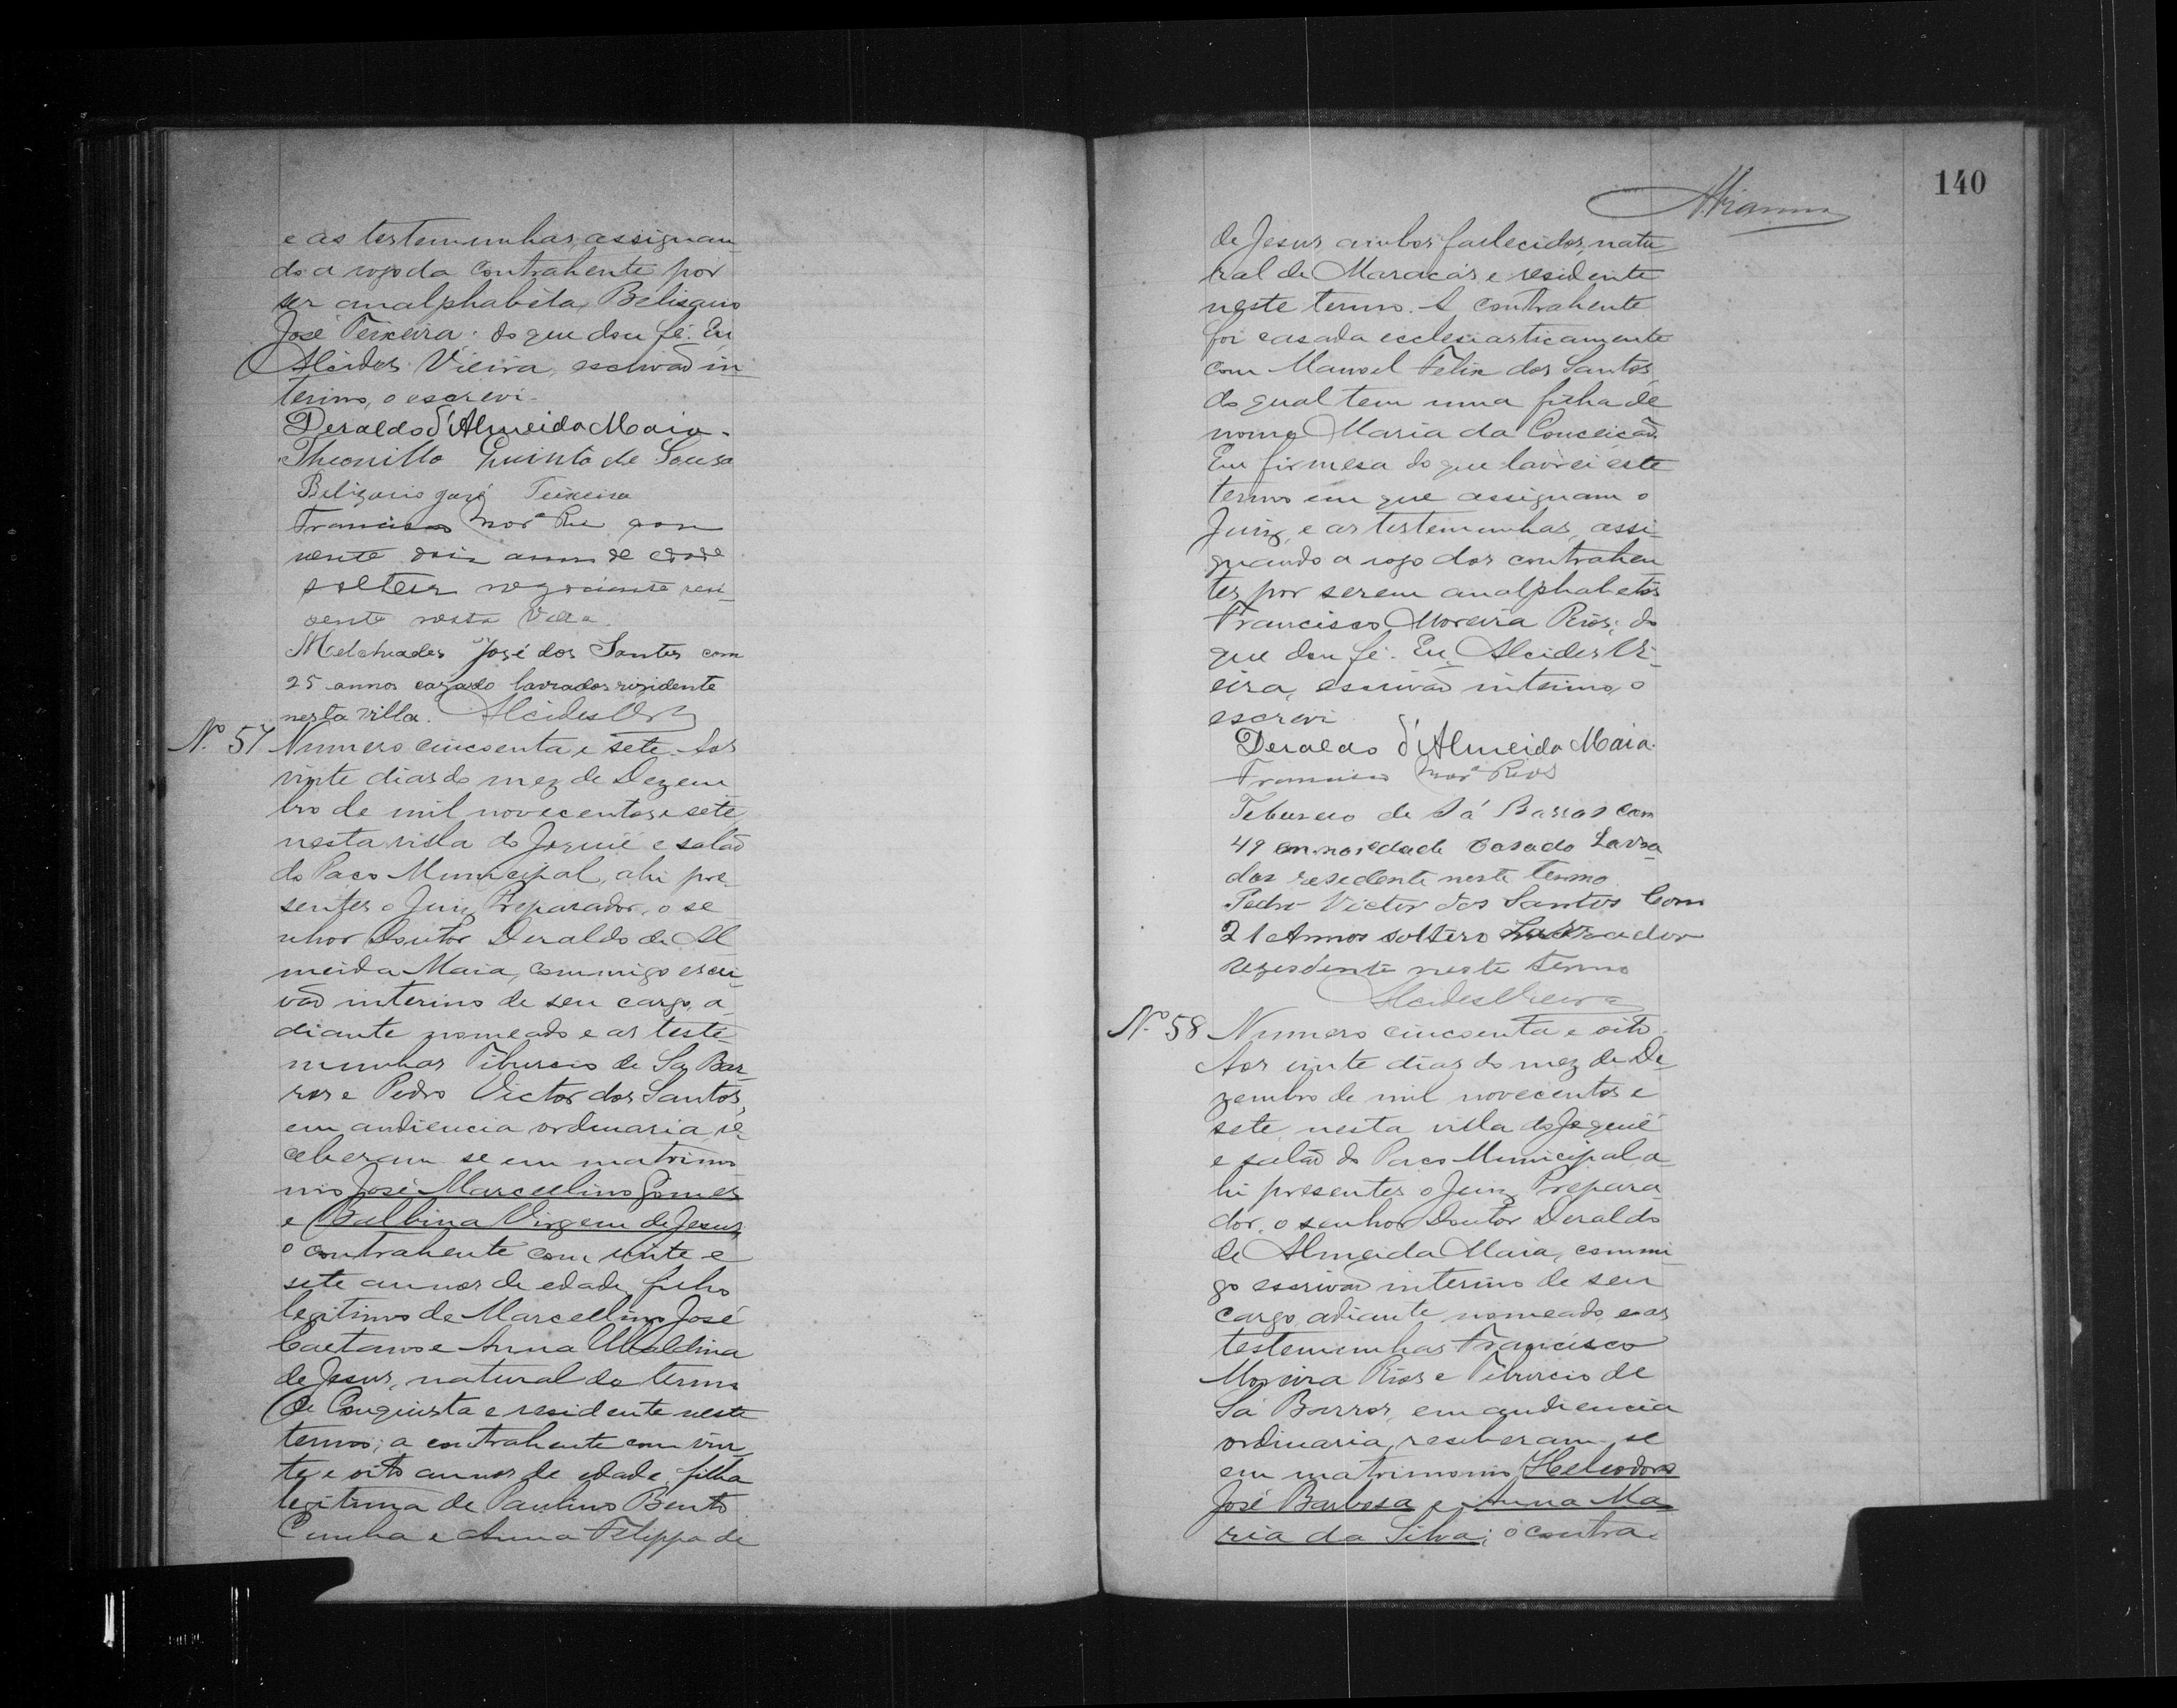 e as testemunhas, assignan-
do a rogo da contrahente por
ser analphabeta, Belisario
José Teixeira; do que dou fé. Eu
Alcides Vieira, escrivaõ in-
terino, o escrevi.
Deraldo d'Almeida Maia.
Theonillo Quinto de Sousa
Belizario José Teixeira
Francisco Morª Rios com
vente dois annos de edade
solteiro negociante resi-
dente nesta Villa.
Melchiades José dos Santos com
25 annos cazado lavrador rizidente
nesta villa. Alcides
Nº 57 Numero cincoenta e sete. Aos
vinte dias do mez de Dezem-
bro de mil novecentos e sete,
nesta villa do Jequié e salaõ
do Paco Municipal, ahi pre-
sentes o Juiz Preparador, o se-
nhor Doutor Deraldo de Al-
meida Maia, commigo escri-
vaõ interino de seu cargo, a-
diante nomeado e as teste-
munhas Tiburcio de Sá Bar-
ros e Pedro Victor dos Santos,
em audiencia ordinaria re-
ceberam se em matrimo-
nio José Marcellino Gomes
e Balbina Virgem de Jesus;
o contrahente com vinte e
sete annos de edade, filho
legitimo de Marcellino José
Caetano e Anna Ubaldina
de Jesus, natural do termo
de Conquista e residente neste
termo; a contrahente com vin-
te e oito annos de edade, filha
legitima de Paulino Bento
Cunha e Anna Felippa de
140
de Jesus, ambos fallecidos, natu-
ral de Maracás e residente
neste termo. A contrahente
foi casada ecclesiasticamente
com Manoel Felix dos Santos
do qual tem uma filha de
nome Maria da Conceicaõ.
Em firmesa do que lavrei este
termo em que assignam o
Juiz, e as testemunhas, assi-
gnando a rogo dos contrahen-
tes por serem analphabetos
Francisco Moreira Rios; do
que dou fé. Eu, Alcides Vi-
eira, escrivaõ interino, o
escrevi
Deraldo d'Almeida Maia.
Francisco Morª Rios
Teburcio de Sá Barros com
49 annos edade Casado Lavra-
dor resedente neste termo
Pedro Victor dos Santos Com
21 Annos soltero Lavrador
rezesdente neste termo
Alcides Vieira
Nº 58 Numero cincoenta e oito.
Aos vinte dias do mez de De-
zembro de mil novecentos e
sete, nesta villa do Jequié
e salaõ do Paco Municipal, a-
hi presentes o Juiz Prepara-
dor, o senhor Doutor Deraldo
de Almeida Maia, commi-
go escrivaõ interino de seu
cargo, adiante nomeado, e as
testemunhas Francisco
Moreira Rios e Tiburcio de
Sá Barros, em audiencia
ordinaria, receberam-se
em matrimonio Heliodoro
José Barbosa e Anna Ma-
ria da Silva; o contra-